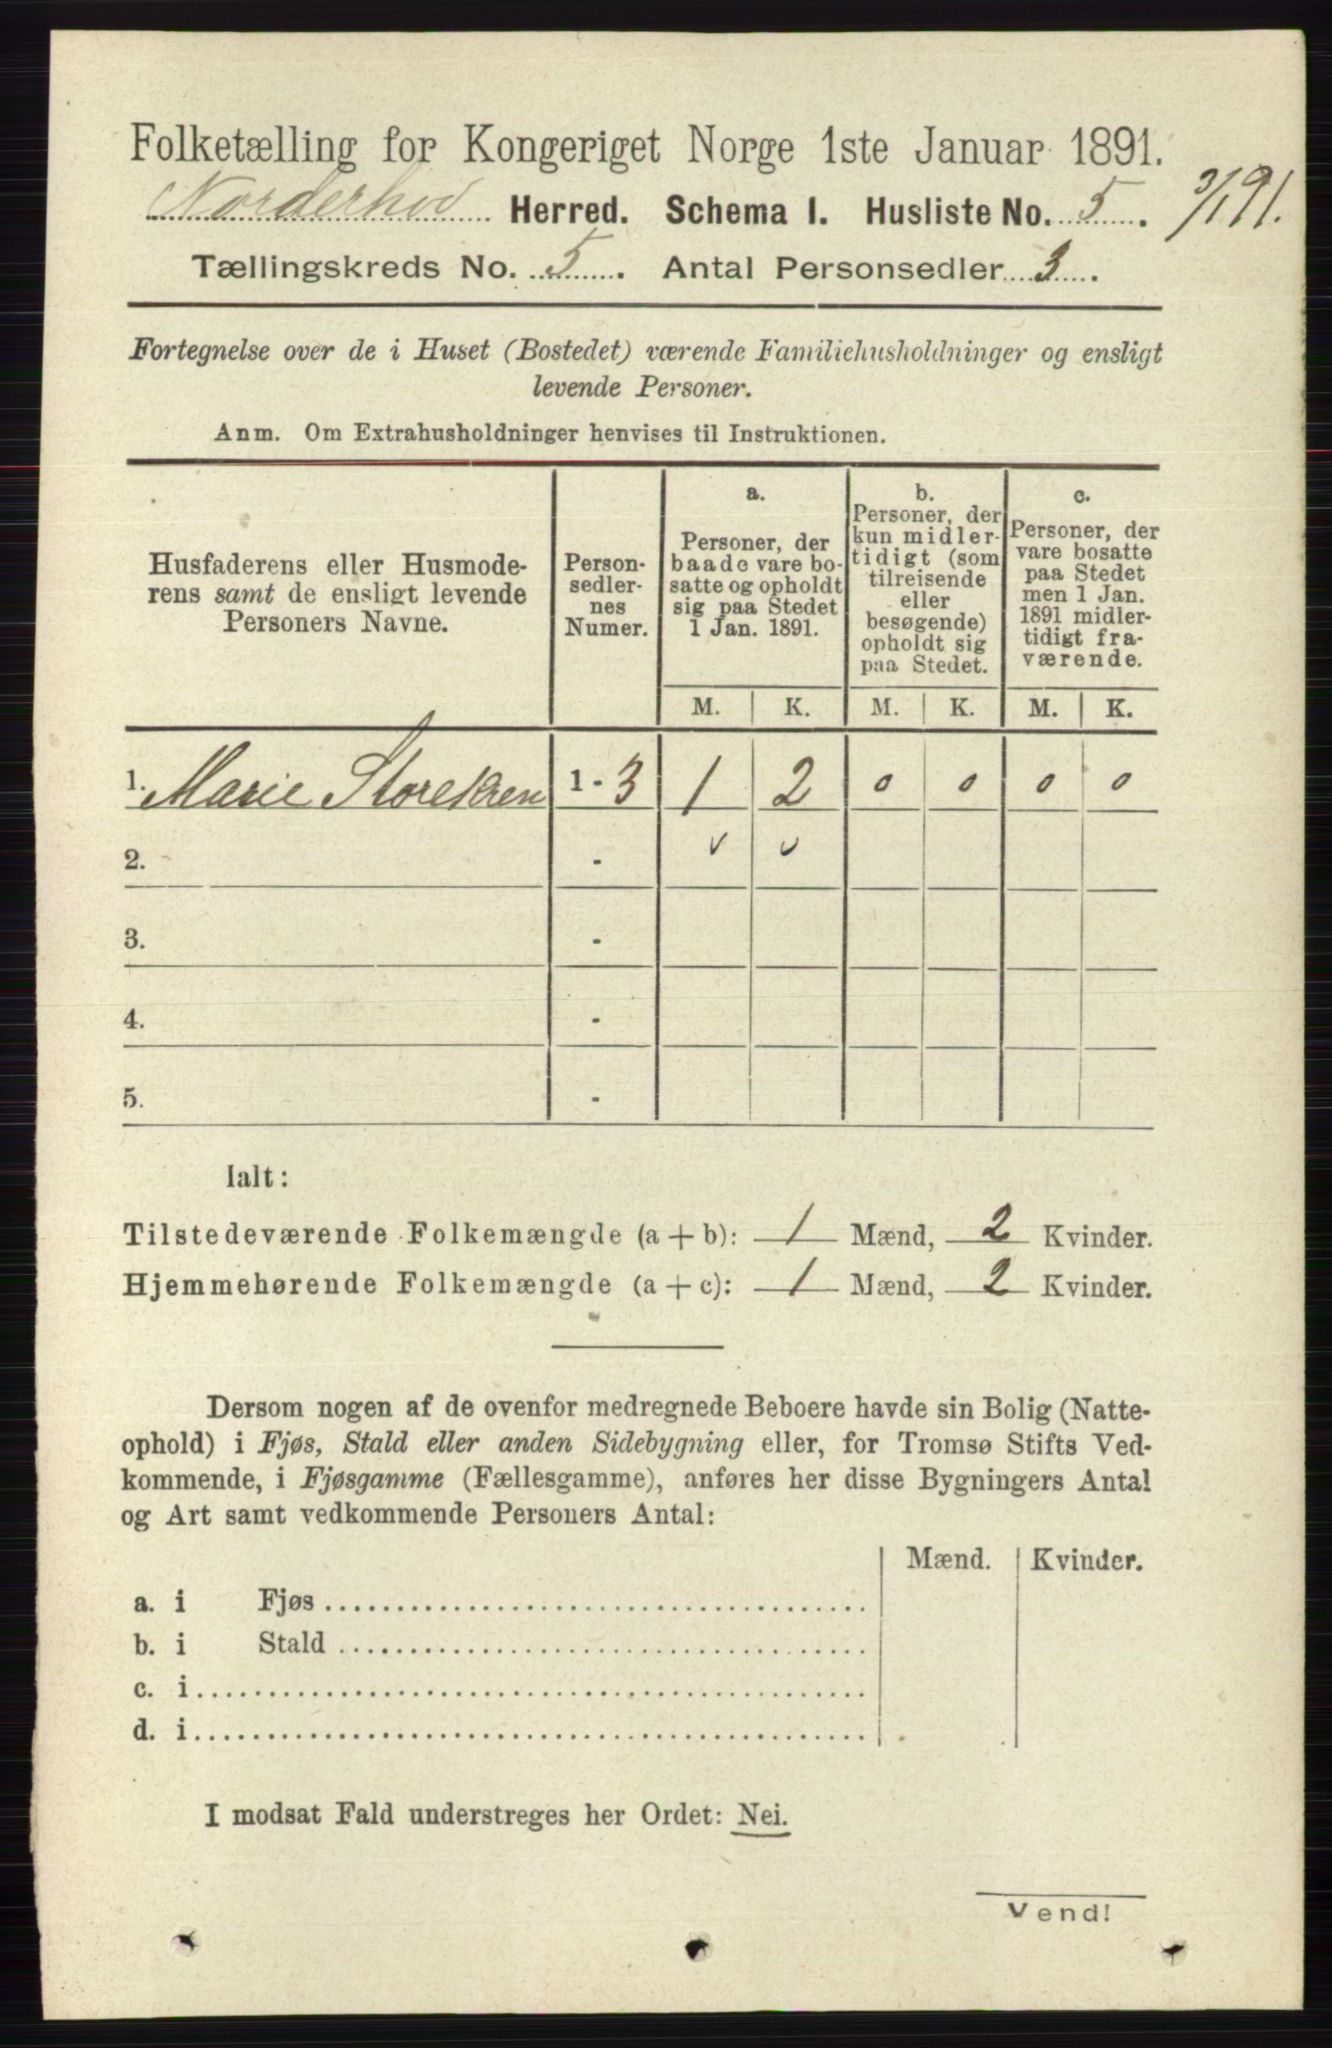 Folketælling for Kongeriget Norge 1ste Januar 1891.
Norderhov Herred. Schema I. Husliste No. 5. 3/1 91.
Tællingskreds No. 5. Antal Personsedler 3.
Fortegnelse over de i Huset (Bostedet) værende Familiehusholdninger og ensligt
levende Personer.
Anm. Om Extrahusholdninger henvises til Instruktionen.
Husfaderens eller Husmode-
rens samt de ensligt levende
Personers Navne.
Person-
sedler-
nes
Numer.
a.
Personer, der
baade vare bo-
satte og opholdt
sig paa Stedet
1 Jan. 1891.
b.
Personer, der
kun midler-
tidigt (som
tilreisende
eller
besøgende)
opholdt sig
paa Stedet.
c.
Personer, der
vare bosatte
paa Stedet
men 1 Jan.
1891 midler-
tidigt fra-
værende.
M. K. M. K. M. K.
1. Marie 1 - 3 1 2 0 0 0 0
2. -
3. -
4. -
5. -
Ialt:
Tilstedeværende Folkemængde (a + b): 1 Mænd, 2 Kvinder.
Hjemmehørende Folkemængde (a + c): 1 Mænd, 2 Kvinder.
Dersom nogen af de ovenfor medregnede Beboere havde sin Bolig (Natte-
ophold) i Fjøs, Stald eller anden Sidebygning eller, for Tromsø Stifts Ved-
kommende, i Fjøsgamme (Fællesgamme), anføres her disse Bygningers Antal
og Art samt vedkommende Personers Antal:
Mænd. Kvinder.
a. i Fjøs
b. i Stald
c. i
d. i
I modsat Fald understreges her Ordet: Nei.
Vend!